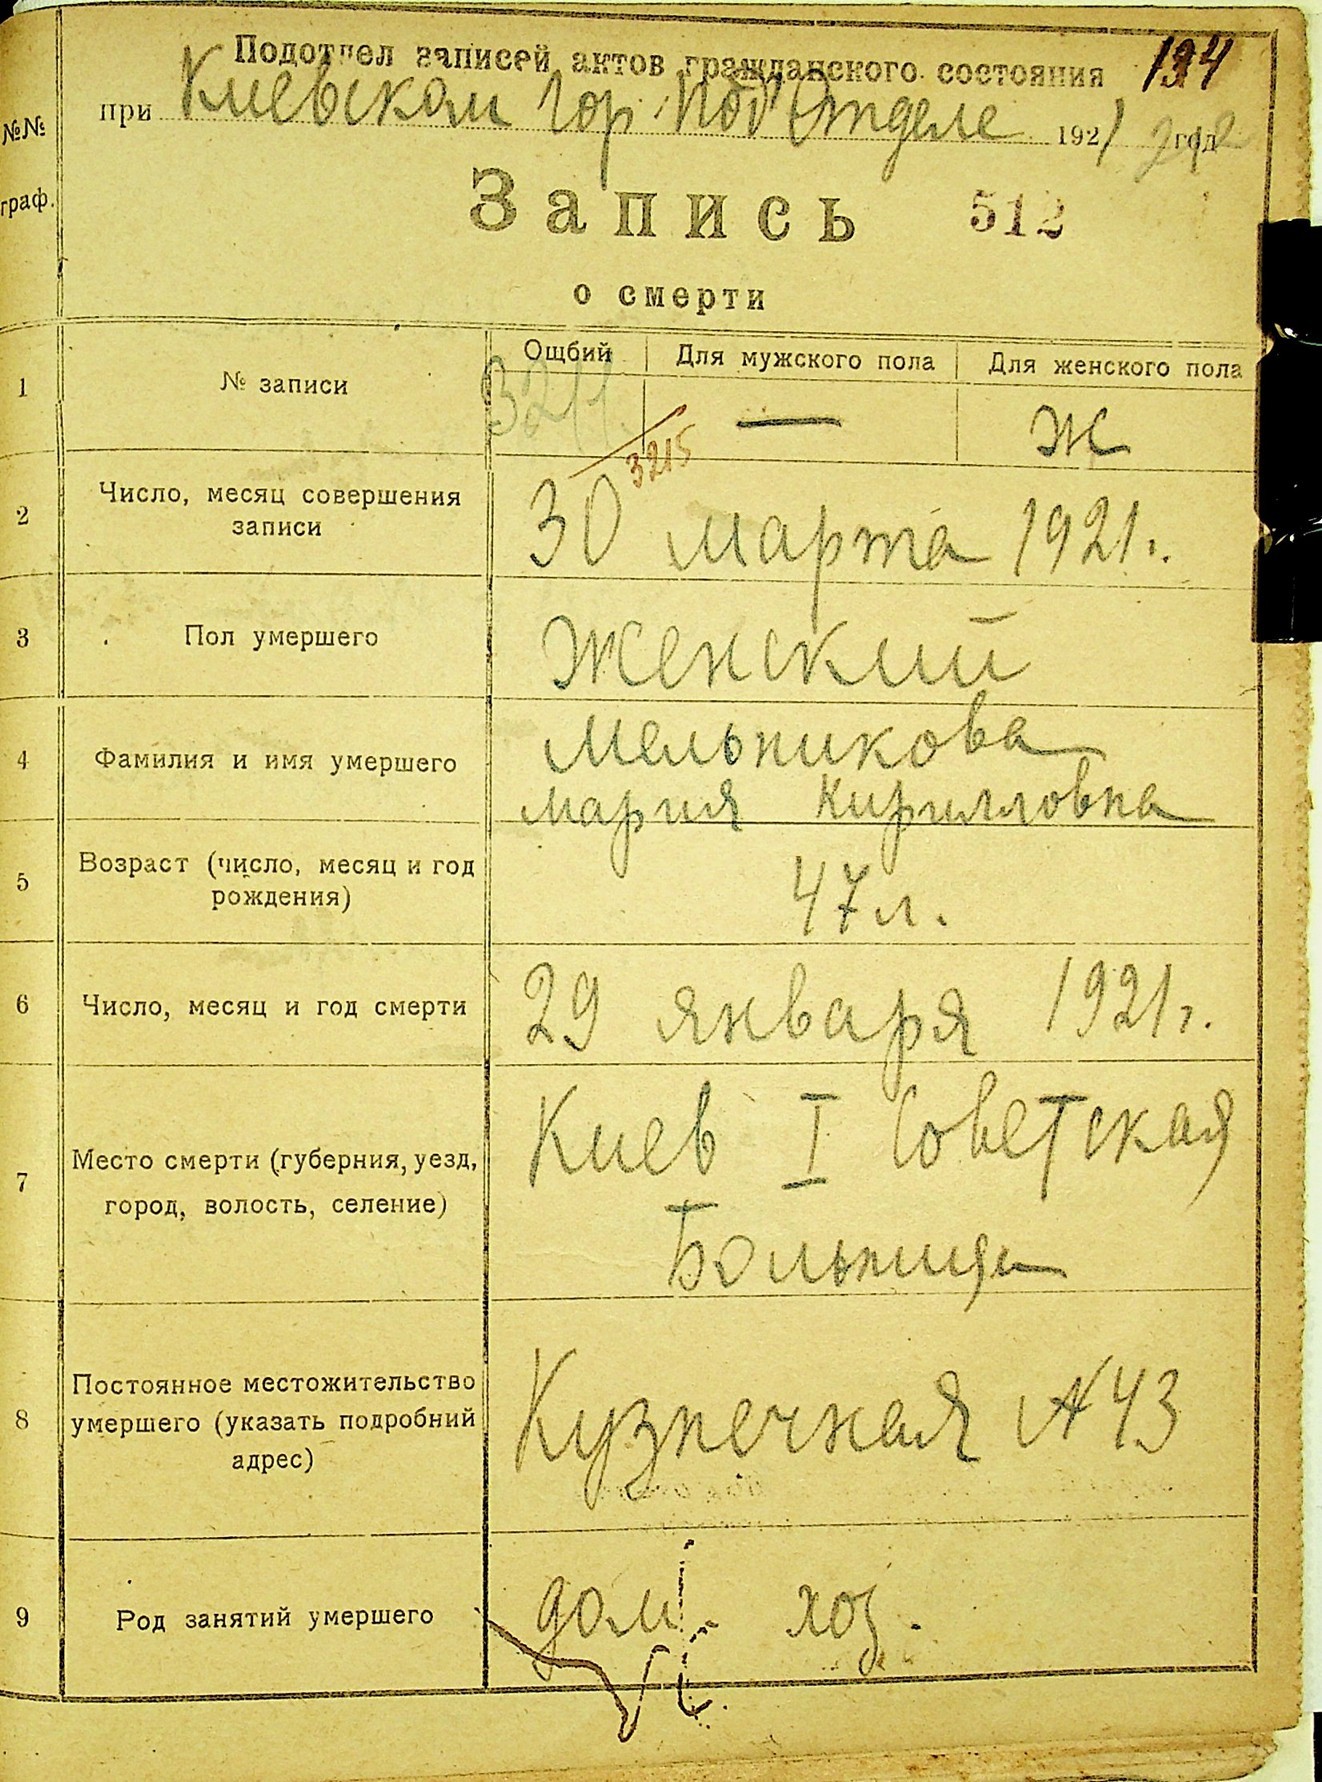 Подотдел записей актов гражданского состояния 194
при Киевском Гор. Под'Отделе 1921 год
№№
граф.
Запись 512
о смерти
Ощбий Для мужского пола Для женского пола
1 № записи 3211 — Ж
3215
2 Число, месяц совершения
записи
30 марта 1921 г.
3 Пол умершего Женский
4 Фамилия и имя умершего
Мельникова
Мария Кирилловна
5 Возраст (число, месяц и год
рождения)
47 л.
6 Число, месяц и год смерти 29 января 1921 г.
7 Место смерти (губерния, уезд,
город, волость, селение)
Киев I Советская
Больница
8 Постоянное местожительство
умершего (указать подробний
адрес)
Кузнечная № 43
9 Род занятий умершего дом. хоз.